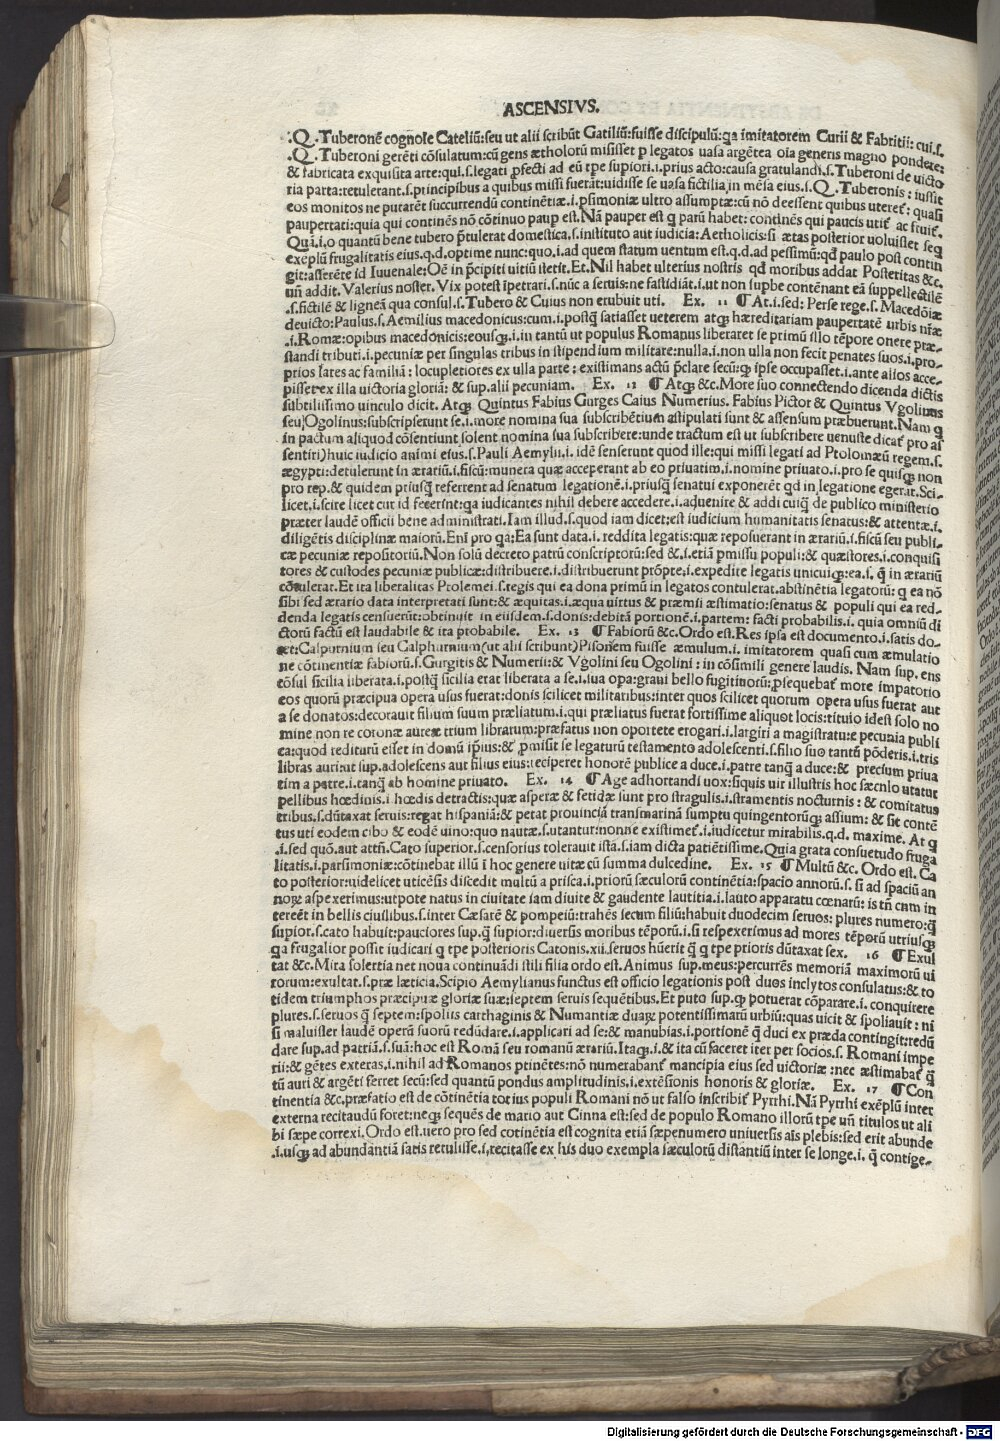 ASCENSIVS.
.Q.Tuberonē cognoīe Cateliū:seu ut alii scribūt Gatiliū:fuisse discipulū:qa imitatorem Curii & Fabritii: cui.s.
.Q.Tuberoni gerēti cōsulatum:cū gens ætholorū misisset p legatos uasa argētea oīa generis magno pondere:
& fabricata exquisita arte:qui.s.legati profecti ad eū tpe supiori.i.prius acto:causa gratulandi.s.Tuberoni de uicto
ria parta:retulerant.s.principibus a quibus missi fuerāt:uidisse se uasa fictilia in mēsa eius.s.Q.Tuberonis: iussit
eos monitos ne putarēt succurrendū continētiæ.i.psimoniæ ultro assumptæ:cū nō deessent quibus uteret᷑: quasi
paupertati:quia qui continēs nō cōtinuo paup est.Nā pauper est q parū habet: continēs qui paucis utit᷑ ac fruit᷑.
Quā.i.o quantū bene tubero prætulerat domestica.s.instituto aut iudicia:Aetholicis:si ætas posterior uoluisset seq
exēplū frugalitatis eius.q.d.optime nunc:quo.i.ad quem statum uentum est.q.d.ad pessimū:qđ paulo post contin
git:asserēte id Iuuenale:Oē in præcipiti uitiū stetit.Et.Nil habet ulterius nostris qđ moribus addat Posteritas &c.
uñ addit. Valerius noster. Vix potest īpetrari.s.nūc a seruis:ne fastidiāt.i.ut non supbe contēnant eā suppellectilē
.s.fictilē & ligneā qua consul.s.Tubero & Cuius non erubuit uti. Ex. 11 ¶ At.i.sed: Perse rege.s. Macedōiæ
deuicto:Paulus.s.Aemilius macedonicus:cum.i.postq̃ satiasset ueterem atqꝫ hæreditariam paupertatē urbis nr̄æ
.i.Romæ:opibus macedonicis:eousqꝫ.i.in tantū ut populus Romanus liberaret se primū illo tēpore onere præ-
standi tributi.i.pecuniæ per singulas tribus in stipendium militare:nulla.i.non ulla non fecit penates suos.i.pro-
prios lares ac familiā: locupletiores ex ulla parte: existimans actū præclare secū:qꝫ ipse occupasset.i.ante alios acce-
pisset ex illa uictoria gloriā: & sup.alii pecuniam. Ex. 12 ¶ Atqꝫ &c.More suo connectendo dicenda dictis
subtilissimo uinculo dicit. Atqꝫ Quintus Fabius Gurges Caius Numerius. Fabius Pictor & Quintus Vgolinus
seu Ogolinus:subscripserunt se.i.more nomina sua subscribētium astipulati sunt & assensum præbuerunt.Nam q
in pactum aliquod cōsentiunt solent nomina sua subscribere:unde tractum est ut subscribere uenuste dicat᷑ pro as
sentiri)huic iudicio animi eius.s.Pauli Aemylii.i. idē senserunt quod ille:qui missi legati ad Ptolomæū regem.s.
ægypti:detulerunt in ærariū.i.fiscū:munera quæ acceperant ab eo priuatim.i.nomine priuato.i.pro se quisqꝫ non
pro rep.& quidem priusq̃ referrent ad senatum legationē.i.priusq̃ senatui exponerēt qđ in legatione egerāt.Sci-
licet.i.scire licet cur id fecerīnt:qa iudicantes nihil debere accedere.i.aduenire & addi cuiq̃ de publico ministerio
præter laudē officii bene administrati. Iam illud.s.quod iam dicet:est iudicium humanitatis senatus:& attentæ.i.
diligētis disciplinæ maiorū.Eni pro qa:Ea sunt data.i. reddita legatis:quæ reposuerant in ærariū.i.fiscū seu publi-
cæ pecuniæ repositoriū.Non solū decreto patrū conscriptorū:sed &.i.etiā pmissu populi:& quæstores.i.conquisi
tores & custodes pecuniæ publicæ:distribuere.i.distribuerunt prōpte:i.expedite legatis unicuiqꝫ:ea.s. q̄ in ærariū
cōtulerat.Et ita liberalitas Ptolemei.s.regis qui ea dona primū in legatos contulerat.abstinētia legatorū: q ea nō
sibi sed ærario data interpretati sunt:& æquitas.i.æqua uirtus & præmii æstimatio:senatus & populi qui ea red-
denda legatis censuerūt:obtinuit in eiisdem.s.donis:debitā portionē.i.partem: facti probabilis.i. quia omniū di
ctorū factū est laudabile & ita probabile. Ex. 13 ¶ Fabiorū &c.Ordo est.Res ipsa est documento.i.satis do-
cet:Calpurnium seu Calphurnium(ut alii scribunt)Pisonem fuisse æmulum.i. imitatorem quasi cum æmulatio
ne cōtinentiæ fabiorū.s.Gurgitis & Numerii:& Vgolini seu Ogolini: in cōsimili genere laudis. Nam sup. ens
cōsul sicilia liberata.i.postq̃ sicilia erat liberata a se.i.sua opa:graui bello fugitiuorū:psequebat᷑ more impatorio
eos quorū præcipua opera usus fuerat:donis scilicet militaribus:inter quos scilicet quorum opera usus fuerat aut
a se donatos:decorauit filium suum præliatum.i.qui præliatus fuerat fortissime aliquot locis:titulo idest solo no
mine non re coronæ aureæ trium librarum:præfatus non oportere erogari.i.largiri a magistratu:e pecunia publi
ca:quod rediturū esset in domū ipsius:& promisit se legaturū testamento adolescenti.s.filio suo tantū pōderis.i.tris
libras auri:ut sup.adolescens aut filius eius:reciperet honorē publice a duce.i.patre tanq̃ a duce:& precium priua
tim a patre.i.tanq̃ ab homine priuato. Ex. 14 ¶ Age adhortandi uox:siquis uir illustris hoc sæculo utatur
pellibus hœdinis.i hœdis detractis:quæ asperæ & fetidæ sunt pro stragulis.i.stramentis nocturnis: & comitatus
tribus.s.dūtaxat seruis:regat hispaniā:& petat prouinciā transmarinā sumptu quingentorūqꝫ assium: & sit contē
tus uti eodem cibo & eodē uino:quo nautæ.s.utantur:nonne existimet᷑.i.iudicetur mirabilis.q.d. maxime. At q
.i.sed quō.aut attñ.Cato superior.s.censorius tolerauit ista.s.iam dicta patiētissime.Quia grata consuetudo fruga
litatis.i.parsimoniæ:cōtinebat illū ī hoc genere uitæ cū summa dulcedine. Ex. 15 ¶ Multū &c. Ordo est. Ca
to posterior:uidelicet uticēsis discedit multū a prisca.i.priorū sæculorū continētia:spacio annorū.s. si ad spaciū an
norꝝ aspexerimus:utpote natus in ciuitate iam diuite & gaudente lautitia.i.lauto apparatu cœnarū: is tñ cum in
tereēt in bellis ciuilibus.s.inter Cæsarē & pompeiū:trahēs secum filiū:habuit duodecim seruos: plures numero:q̃
supior.s.cato habuit:pauciores sup.q̃ supior:diuersis moribus tēporū.i.si respexerimus ad mores tēporū utriusqꝫ
qa frugalior possit iudicari q tpe posterioris Catonis.xii.seruos hūerit q̃ q tpe prioris dūtaxat sex. 16 ¶ Exul
tat &c.Mira solertia nec noua continuādi stili filia ordo est.Animus sup.meus:percurrēs memoriā maximorū ui
rorum:exultat.s.præ læticia.Scipio Aemylianus functus est officio legationis post duos inclytos consulatus:& to
tidem triumphos præcipuæ gloriæ suæ:septem seruis sequētibus.Et puto sup.qꝫ potuerat cōparare.i. conquirere
plures.s.seruos q̃ septem:spoliis carthaginis & Numantiæ duarꝝ potentissimarū urbiū:quas uicit & spoliauit: ni
si maluisset laudē operū suorū redūdare.i.applicari ad se:& manubias.i.portionē q̄ duci ex præda contingit:redū
dare sup.ad patriā.s.suā:hoc est Romā seu romanū ærariū.Itaqꝫ.i.& ita cū faceret iter per socios.s. Romani impe
rii:& gētes exteras.i.nihil ad Romanos ptinētes:nō numerabant᷑ mancipia eius sed uictoriæ:nec æstimabat᷑ q̄
tū auri & argēti ferret secū:sed quantū pondus amplitudinis.i.extēsionis honoris & gloriæ. Ex. 17 ¶ Con
tinentia &c.præfatio est de cōtinētia totius populi Romani nō ut falso inscribit᷑ Pyrrhi.Nā Pyrrhi exēplū inter
externa recitaudū foret:necqꝫ sequēs de mario aut Cinna est:sed de populo Romano illorū tpe uñ titulos ut ali
bi sæpe correxi.Ordo est.uero pro sed cōtinētia est cognita etiā sæpenumero uniuersis aīs plebis:sed erit abunde
.i.usqꝫ ad abundantiā satis retulisse.i.recitasse ex his duo exempla sæculorū distantiū inter se longe.i. q̄ contige-
Digitalisierung gefördert durch die Deutsche Forschungsgemeinschaft - DFG